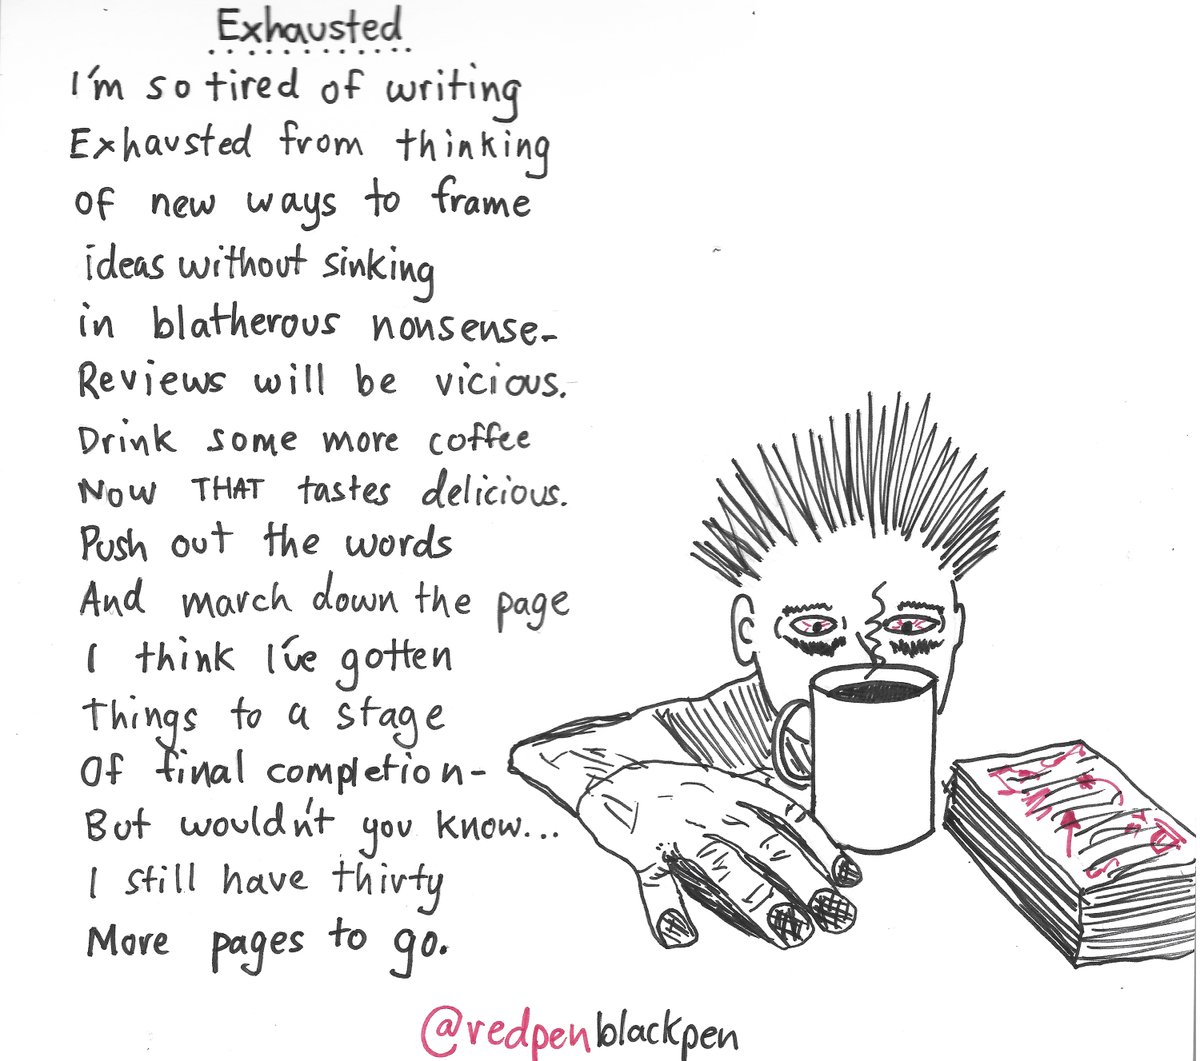 Exhausted
I'm so tired of writing
Exhausted from thinking
of new ways to frame
ideas without sinking
in blatherous nonsense-
Reviews will be vicious.
Drink some more coffee
Now THAT tastes delicious.
Push out the words
And march down the page
I think I've gotten
things to a stage
Of final completion-
But wouldn't you know...
I still have thirty
More pages to go.
@redpenblackpen